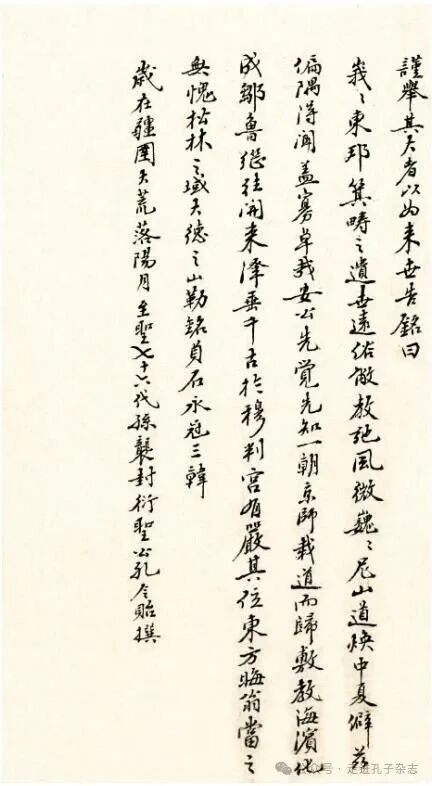 謹舉其大者以為来世告銘曰
峩〻東邦箕疇之遺世遠俗敝教訛風微巍〻尼山道煥中夏僻茲
偏隅得聞盖寡卓我安公先覚先知一朝京師載道而歸敷教海濱化
成鄒魯继往開来澤垂千古於穆判宮有嚴其位東方晦翁當之
無愧松林之域天德之山勒銘貞石永冠三韓
歲在疆圉大荒落陽月至聖七十六代孫襲封衍聖公孔令貽撰
公众号·走进孔子杂志